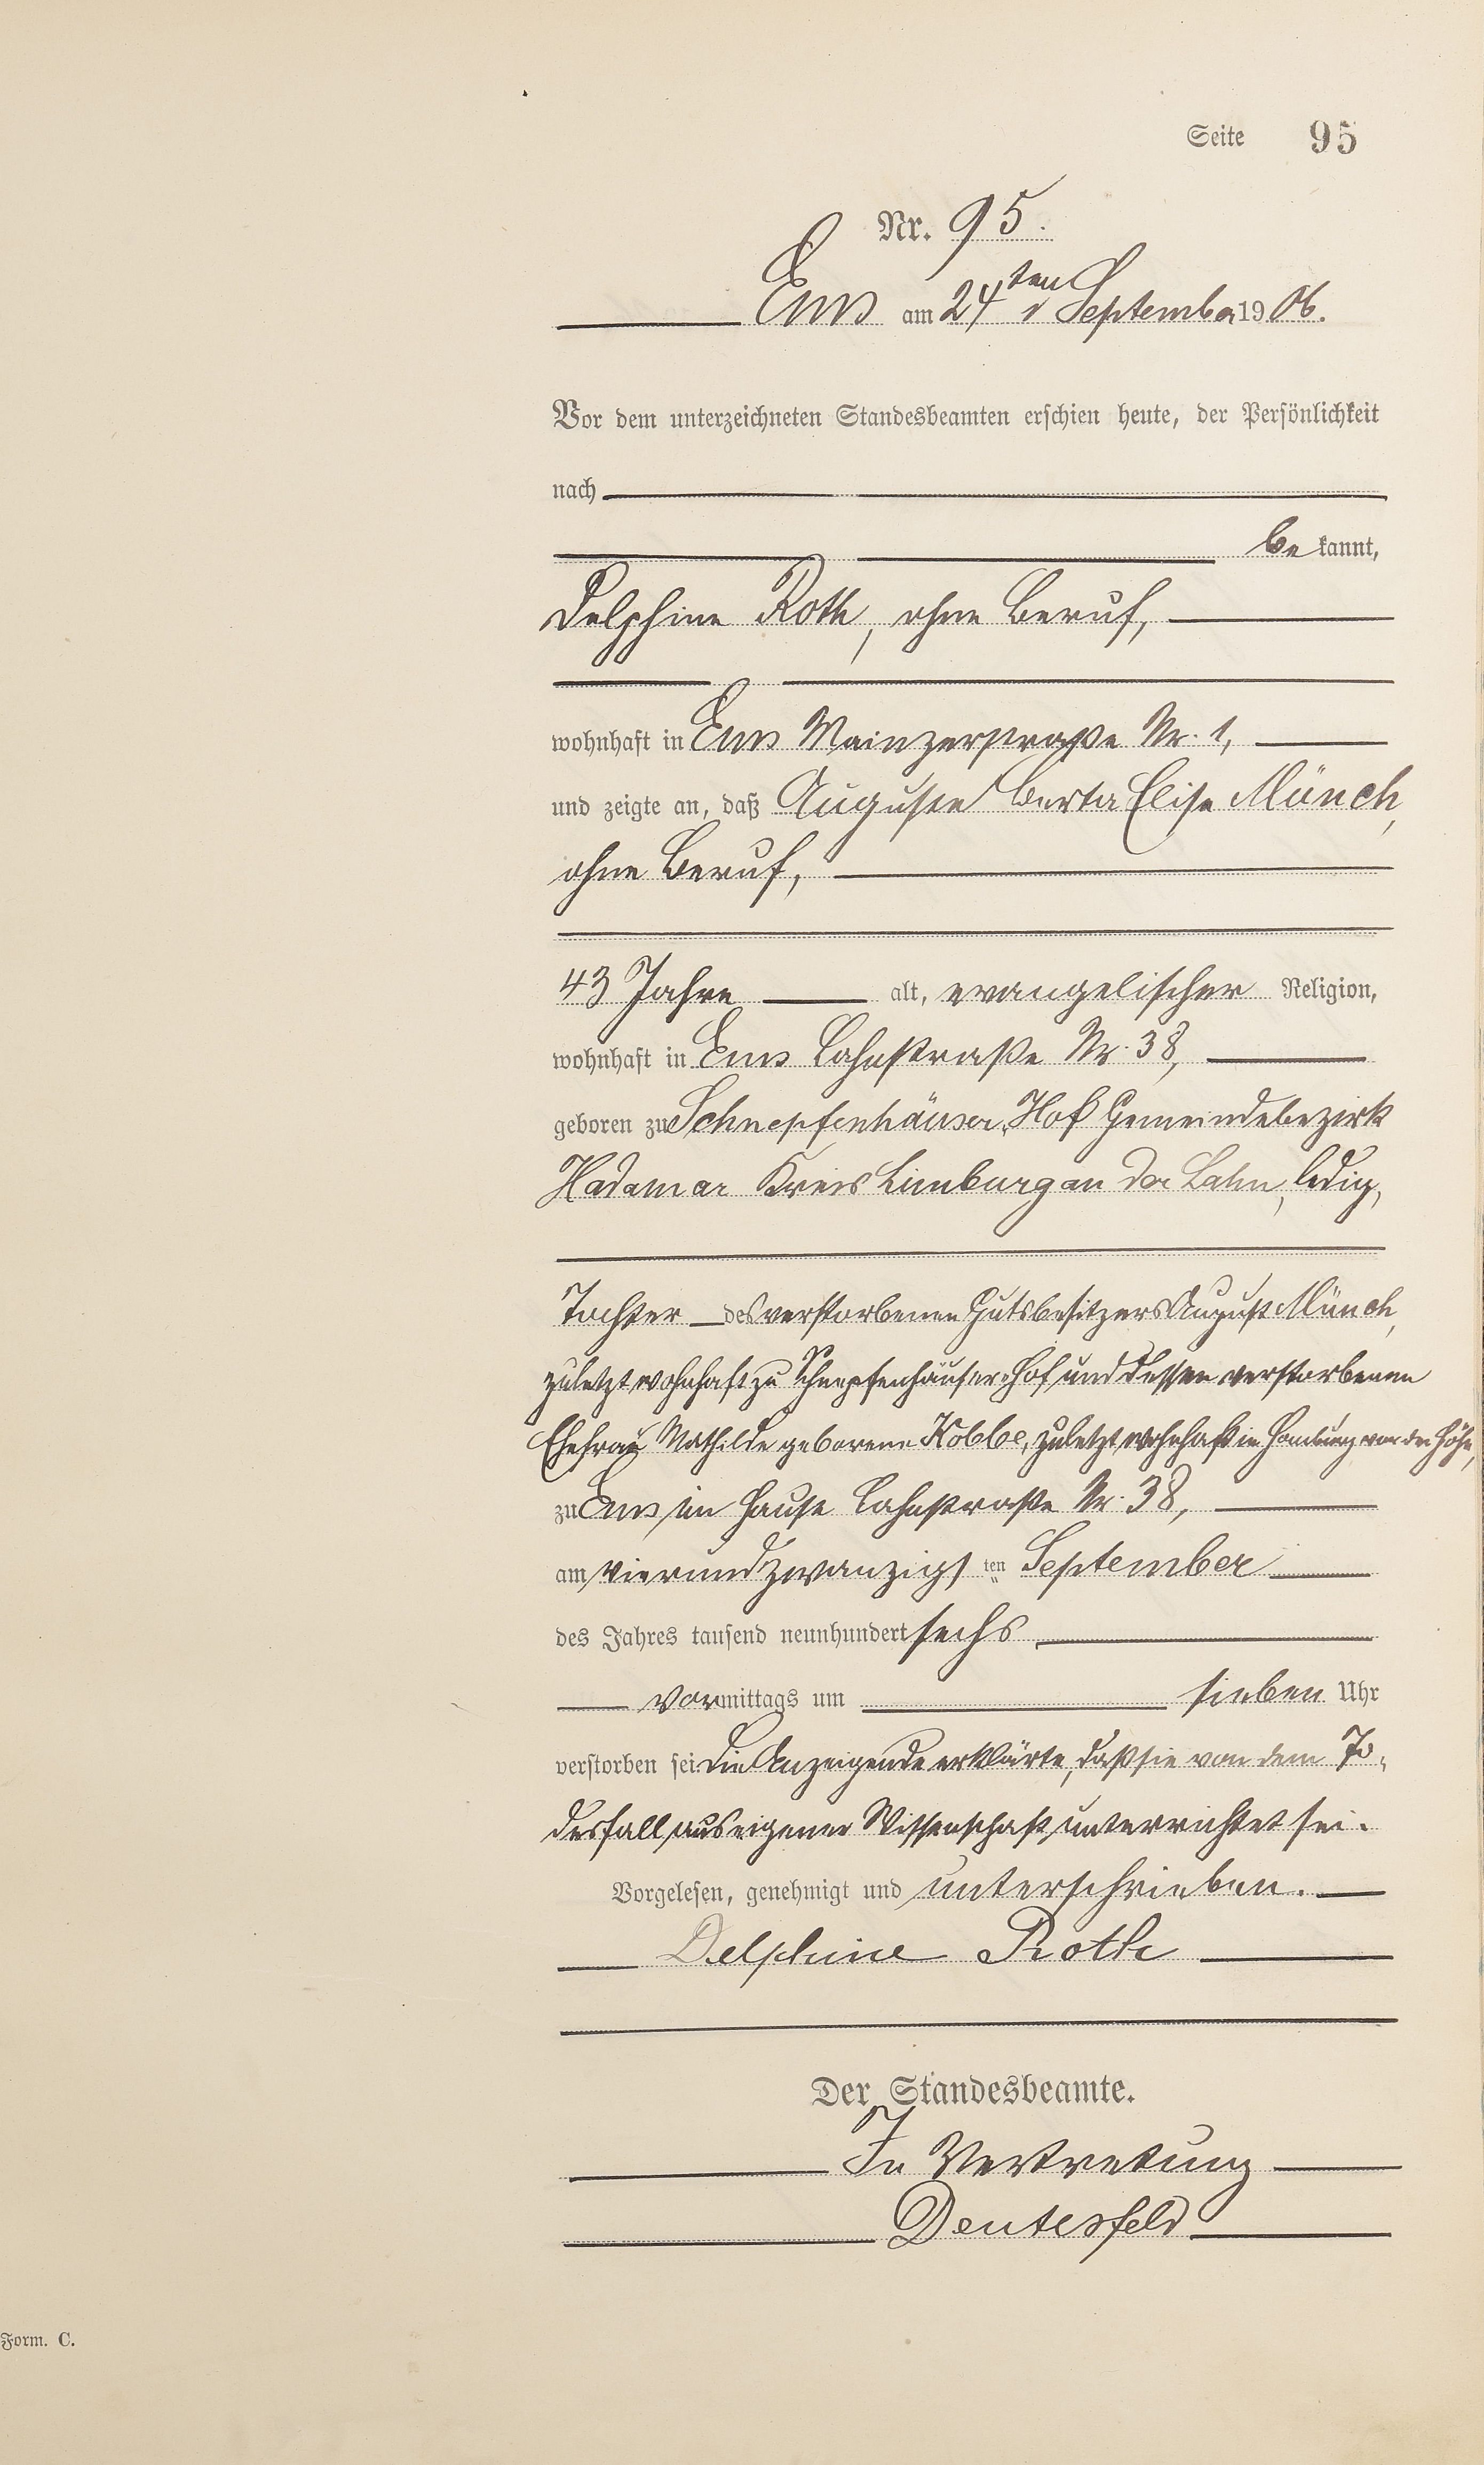 Seite 95
Nr. 95.
Ems am 24ten September 1906.
Vor dem unterzeichneten Standesbeamten erschien heute, der Persönlichkeit
nach
be kannt,
Delphine Roth, ohne Beruf,
wohnhaft in Ems Mainzerstraße Nr. 1,
und zeigte an, daß Auguste Berta Elise Münch,
ohne Beruf,
43 Jahre alt, evangelischer Religion,
wohnhaft in Ems Lahnstraße Nr. 38,
geboren zu Schnepfenhäuser-Hof Gemeindebezirk
Hadamar Kreis Limburg an der Lahn, ledig,
Tochter des verstorbenen Gutsbesitzers August Münch,
zuletzt wohnhaft zu Schnepfenhäuser-Hof und dessen verstorbenen
Ehefrau Mathilde geborene Kobbe, zuletzt wohnhaft in Homburg vor der Höhe,
zu Ems im Hause Lahnstraße Nr. 38,
am vierundzwanzigsten September
des Jahres tausend neunhundert sechs
vormittags um sieben Uhr
verstorben sei. Die Anzeigende erklärte, daß sie von dem To-
desfall aus eigener Wissenschaft unterrichtet sei.
Vorgelesen, genehmigt und unterschrieben.
Delphine Roth
Der Standesbeamte.
In Vertretung
Deutesfeld
Form. C.